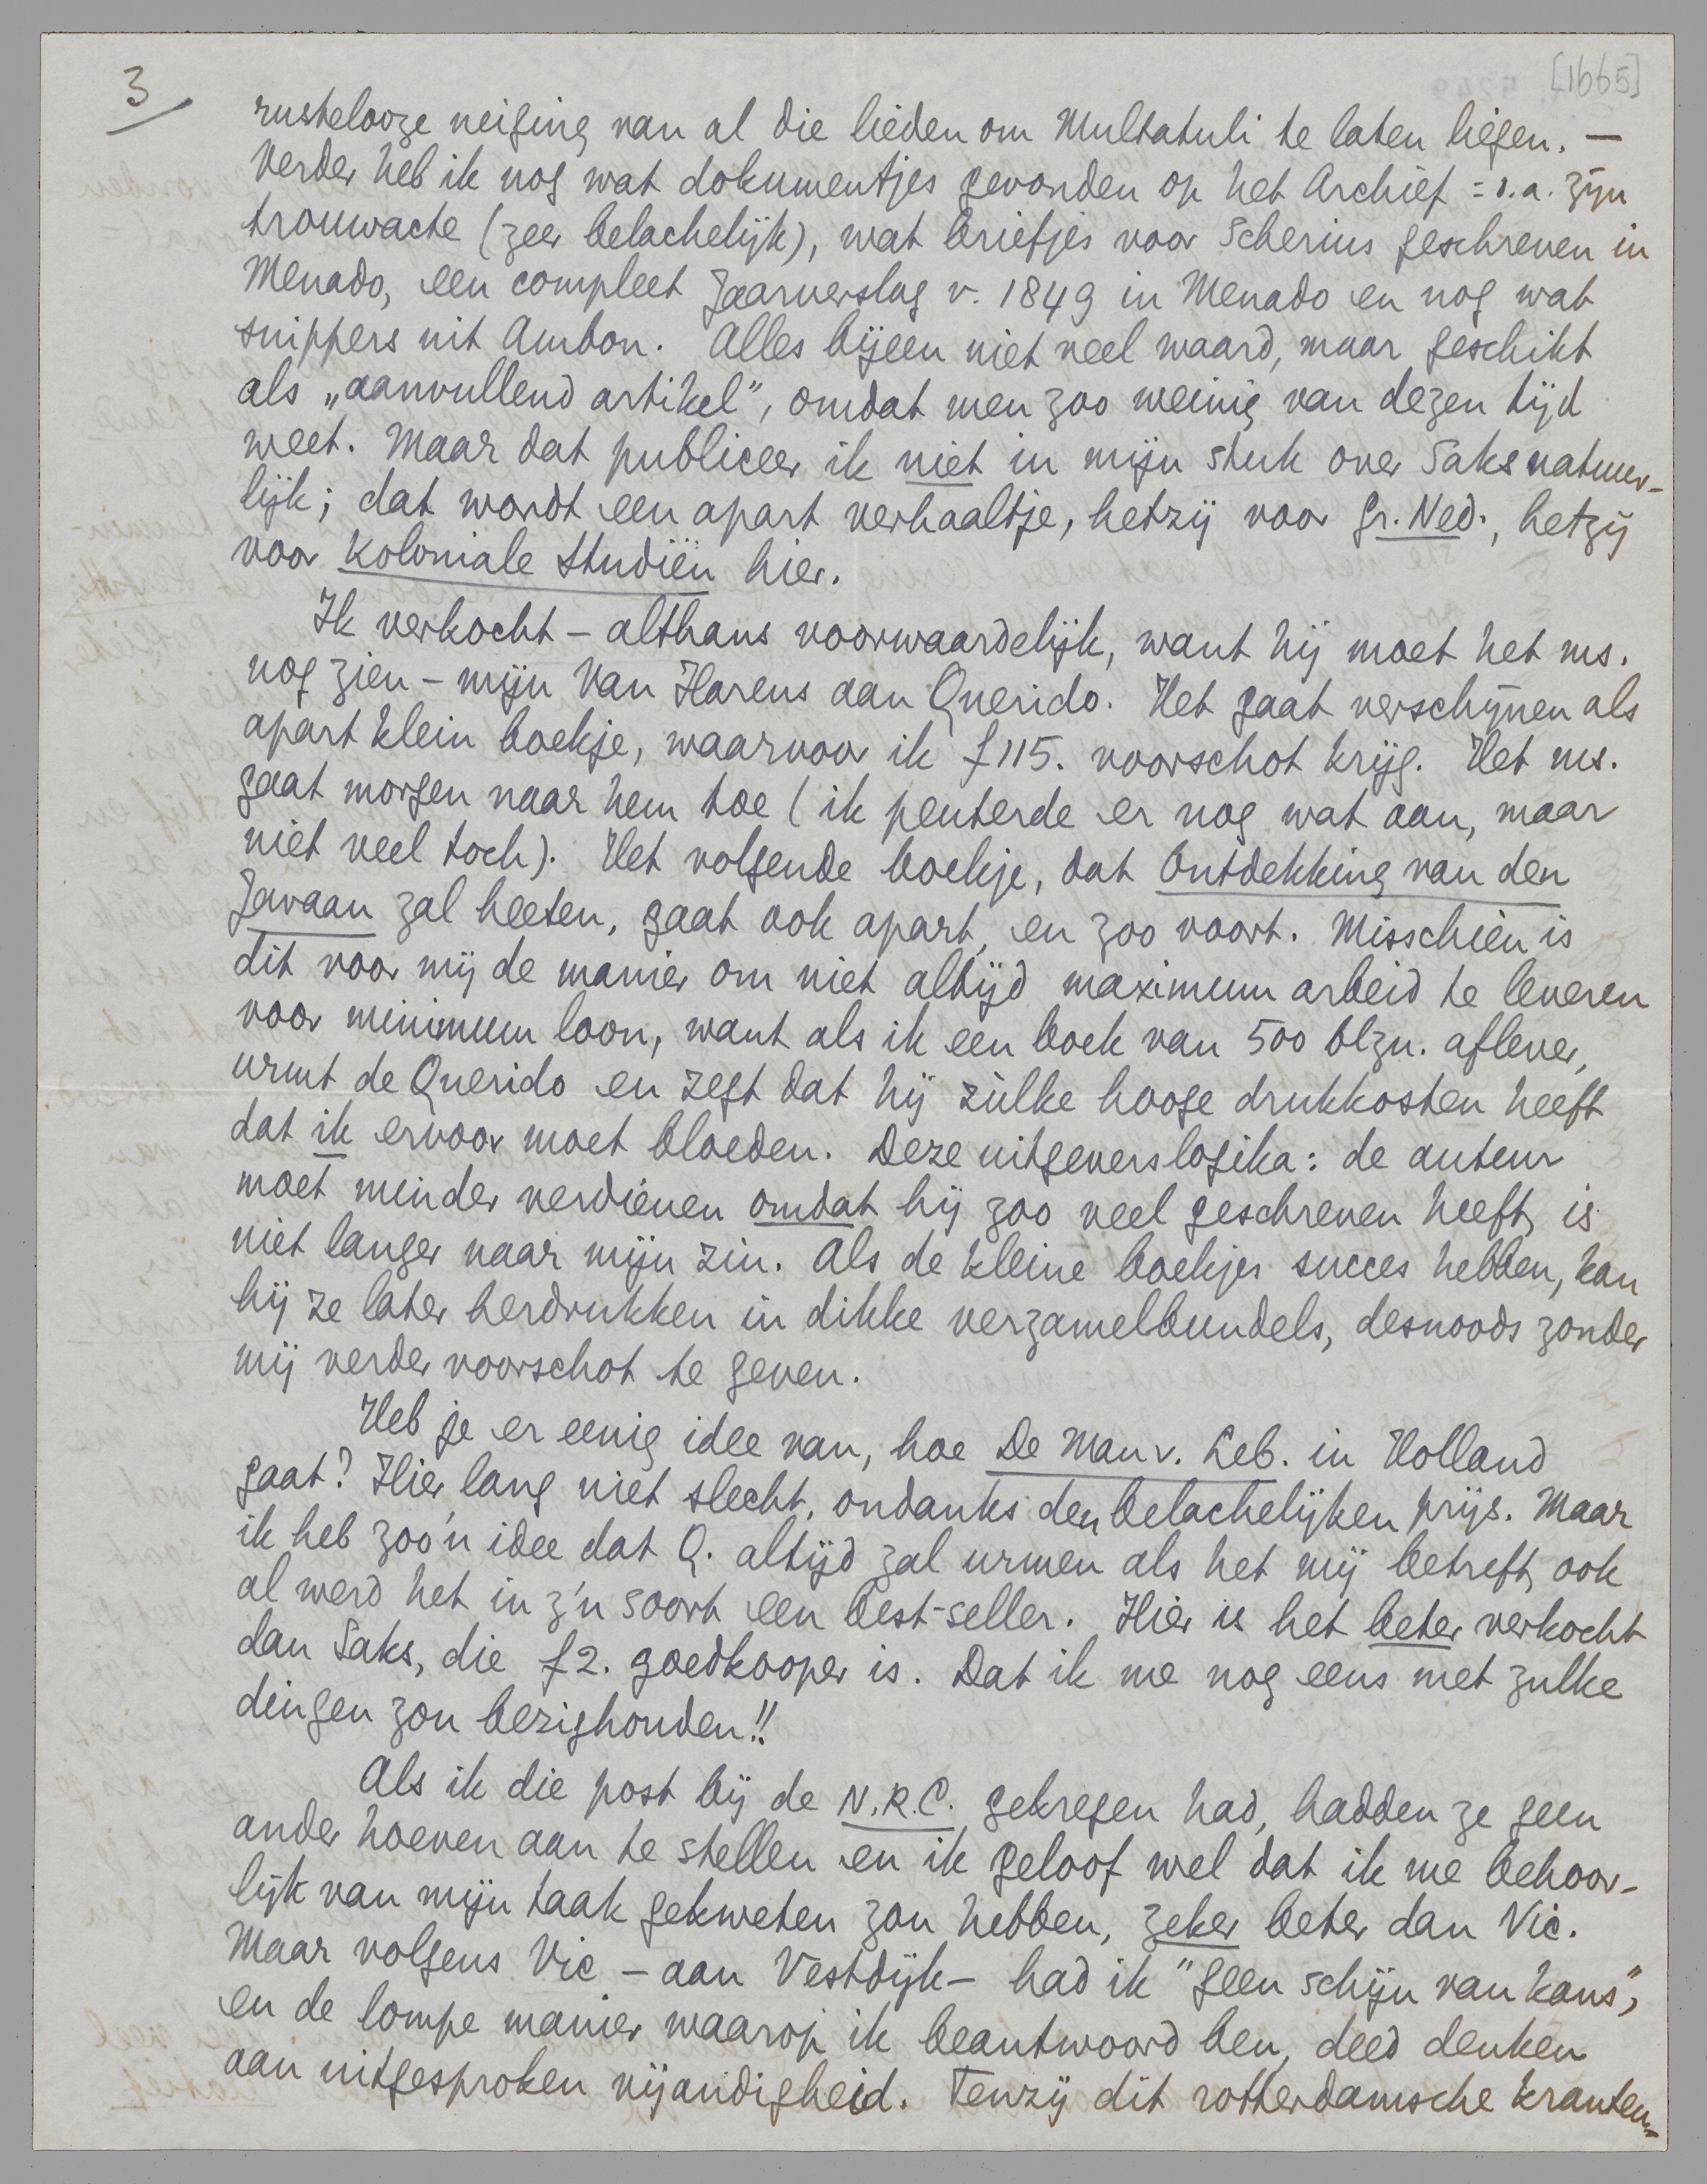 3
[1665]
rustelooze neiging van al die lieden om Multatuli te laten liegen. —
Verder heb ik nog wat dokumentjes gevonden op het Archief: o.a. zijn
trouwacte (zeer belachelijk), wat briefjes voor Scherius geschreven in
Menado, een compleet Jaarverslag v. 1849 in Menado en nog wat
snippers uit Ambon. Alles bijeen niet veel waard, maar geschikt
als „aanvullend artikel", omdat men zoo weinig van dezen tijd
weet. Maar dat publiceer ik niet in mijn stuk over Saks natuur-
lijk; dat wordt een apart verhaaltje, hetzij voor Gr. Ned., hetzij
voor Koloniale Studiën hier.
Ik verkocht – althans voorwaardelijk, want hij moet het ms.
nog zien – mijn Van Harens aan Querido. Het gaat verschijnen als
apart klein boekje, waarvoor ik f 115. voorschot krijg. Het ms.
gaat morgen naar hem toe (ik peuterde er nog wat aan, maar
niet veel toch). Het volgende boekje, dat Ontdekking van den
Javaan zal heeten, gaat ook apart, en zoo voort. Misschien is
dit voor mij de manier om niet altijd maximum arbeid te leveren
voor minimum loon, want als ik een boek van 500 blzn. aflever,
urmt de Querido en zegt dat hij zùlke hooge drukkosten heeft
dat ik ervoor moet bloeden. Deze uitgeverslogika: de auteur
moet minder verdienen omdat hij zoo veel geschreven heeft, is
niet langer naar mijn zin. Als de kleine boekjes succes hebben, kan
hij ze later herdrukken in dikke verzamelbundels, desnoods zonder
mij verder voorschot te geven.
Heb je er eenig idee van, hoe De Man v. Leb. in Holland
gaat? Hier lang niet slecht, ondanks den belachelijken prijs. Maar
ik heb zoo'n idee dat Q. altijd zal urmen als het mij betreft, ook
al werd het in z'n soort een best-seller. Hier is het beter verkocht
dan Saks, die f 2. goedkooper is. Dat ik me nog eens met zulke
dingen zou bezighouden!!
Als ik die post bij de N.R.C. gekregen had, hadden ze geen
ander hoeven aan te stellen en ik geloof wel dat ik me behoor-
lijk van mijn taak gekweten zou hebben, zeker beter dan Vic.
Maar volgens Vic – aan Vestdijk – had ik "geen schijn van kans",
en de lompe manier waarop ik beantwoord ben, deed denken
aan uitgesproken vijandigheid. Tenzij dit rotterdamsche kranten-